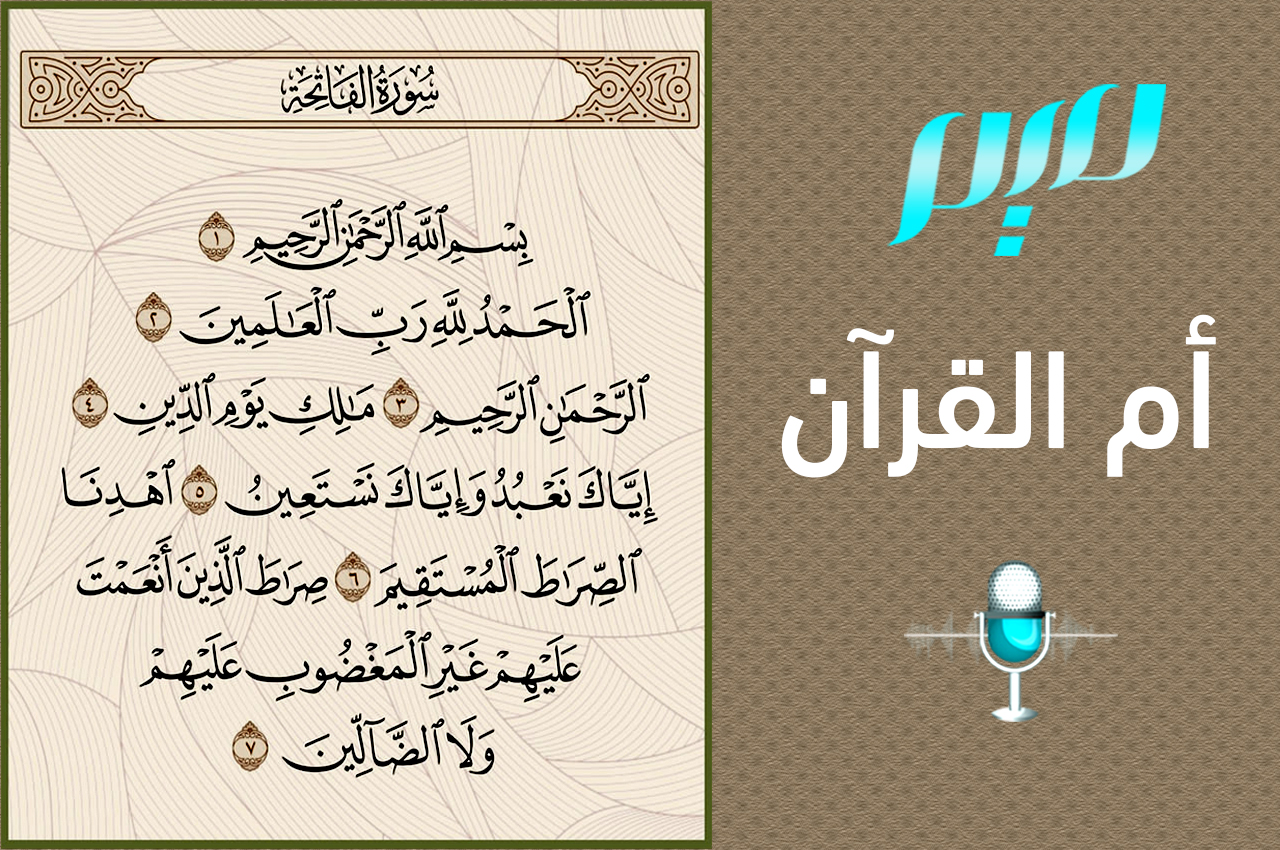 سُورَةُ الفَاتِحَةِ
بِسْمِ ٱللَّهِ ٱلرَّحْمَٰنِ ٱلرَّحِيمِ ١
ٱلْحَمْدُ لِلَّهِ رَبِّ ٱلْعَٰلَمِينَ ٢
ٱلرَّحْمَٰنِ ٱلرَّحِيمِ ٣ مَٰلِكِ يَوْمِ ٱلدِّينِ ٤
إِيَّاكَ نَعْبُدُ وَإِيَّاكَ نَسْتَعِينُ ٥ ٱهْدِنَا
ٱلصِّرَٰطَ ٱلْمُسْتَقِيمَ ٦ صِرَٰطَ ٱلَّذِينَ أَنْعَمْتَ
عَلَيْهِمْ غَيْرِ ٱلْمَغْضُوبِ عَلَيْهِمْ
وَلَا ٱلضَّآلِّينَ ٧
أم القرآن